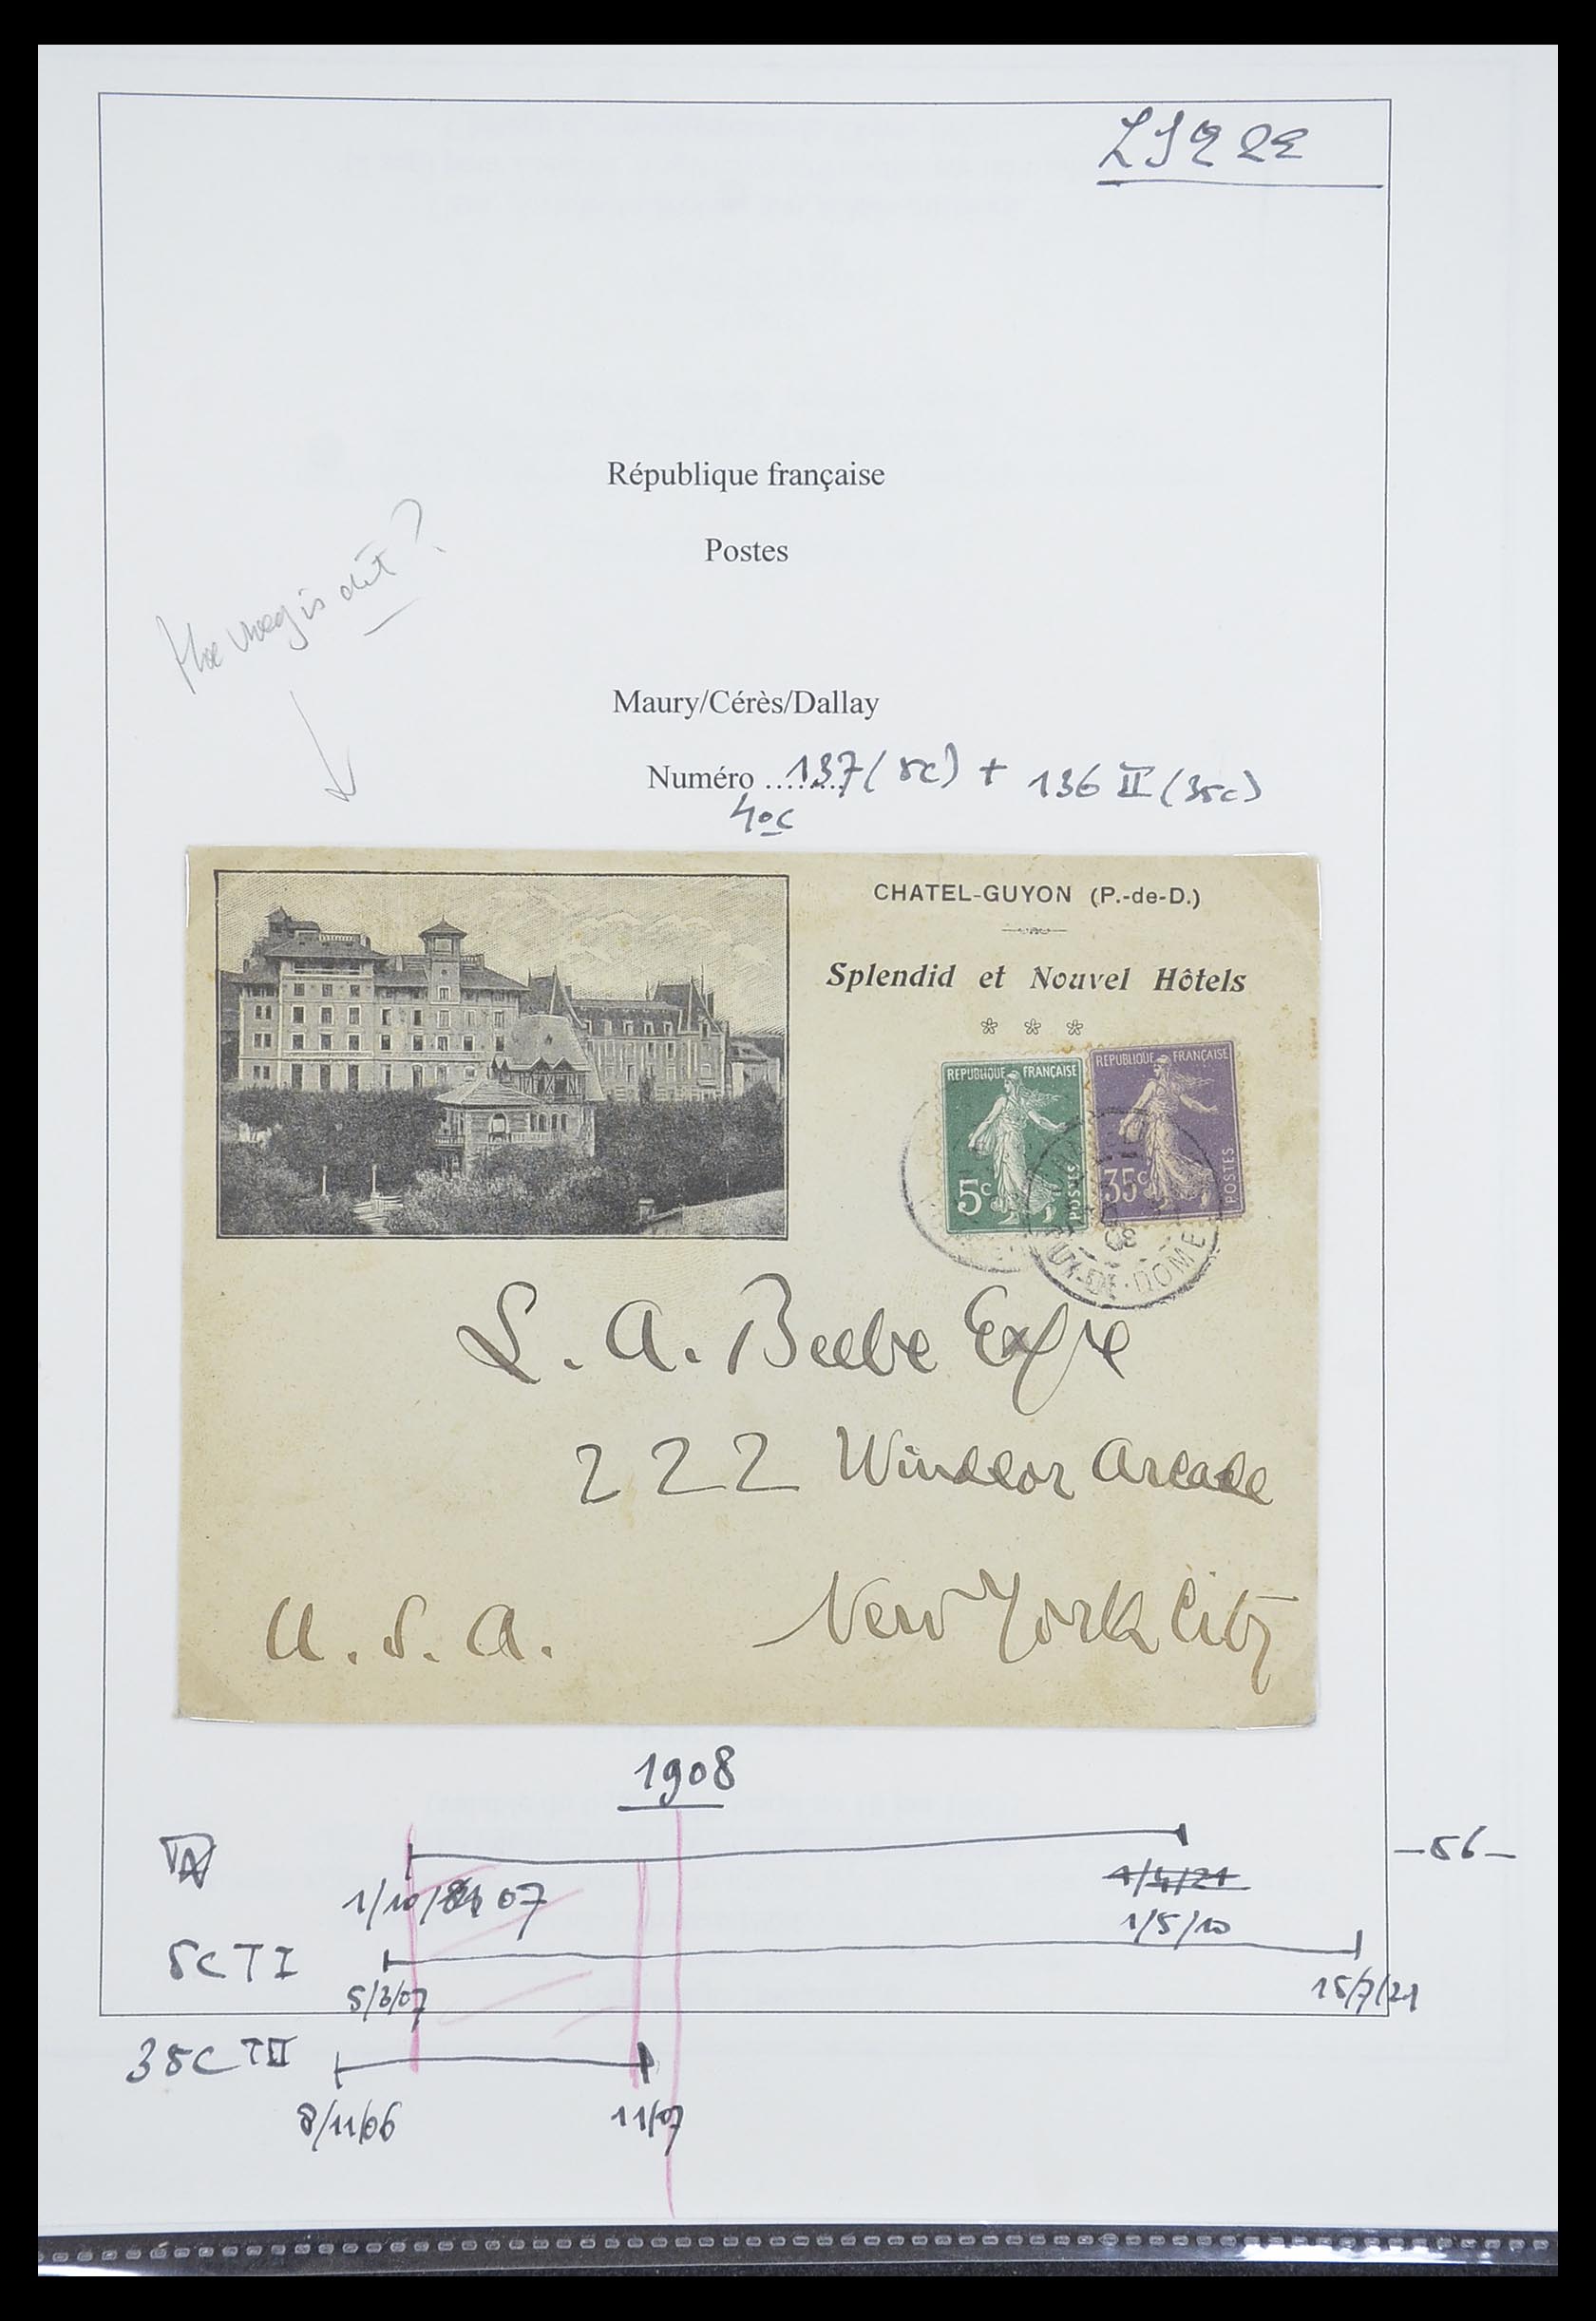 LSQ 2E
République française
Postes
Hoe vroeg is dit?
Maury/Cérès/Dallay
Numéro ........ 137 (5c) + 136 II (35c)
40c
CHATEL-GUYON (P.-de-D.)
Splendid et Nouvel Hôtels
REPUBLIQUE FRANÇAISE
5c
POSTES
REPUBLIQUE FRANÇAISE
35c
POSTES
08
PUY-DE-DOME
L. A. Beebe
222 Windsor Arcade
New York City
U. S. A.
1908
1/10/ 07
1/4/21
1/5/10
-56-
5c TI
5/3/07
15/7/21
35c TII
8/11/06
11/07